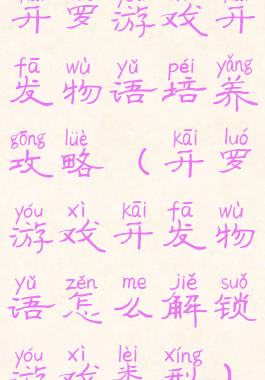 开 罗 游 戏 开
fā wù yǔ péi yǎng
发 物 语 培 养
gōng lüè kāi luó
攻 略 （ 开 罗
yóu xì kāi fā wù
游 戏 开 发 物
yǔ zěn me jiě suǒ
语 怎 么 解 锁
yóu xì lèi xíng
游 戏 类 型 ）